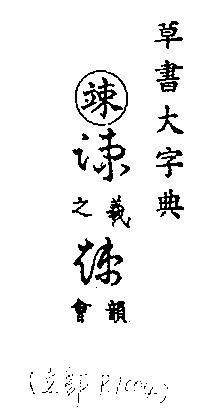 草書大字典
竦
竦
羲之
竦
韻會
(立部 P.1004)